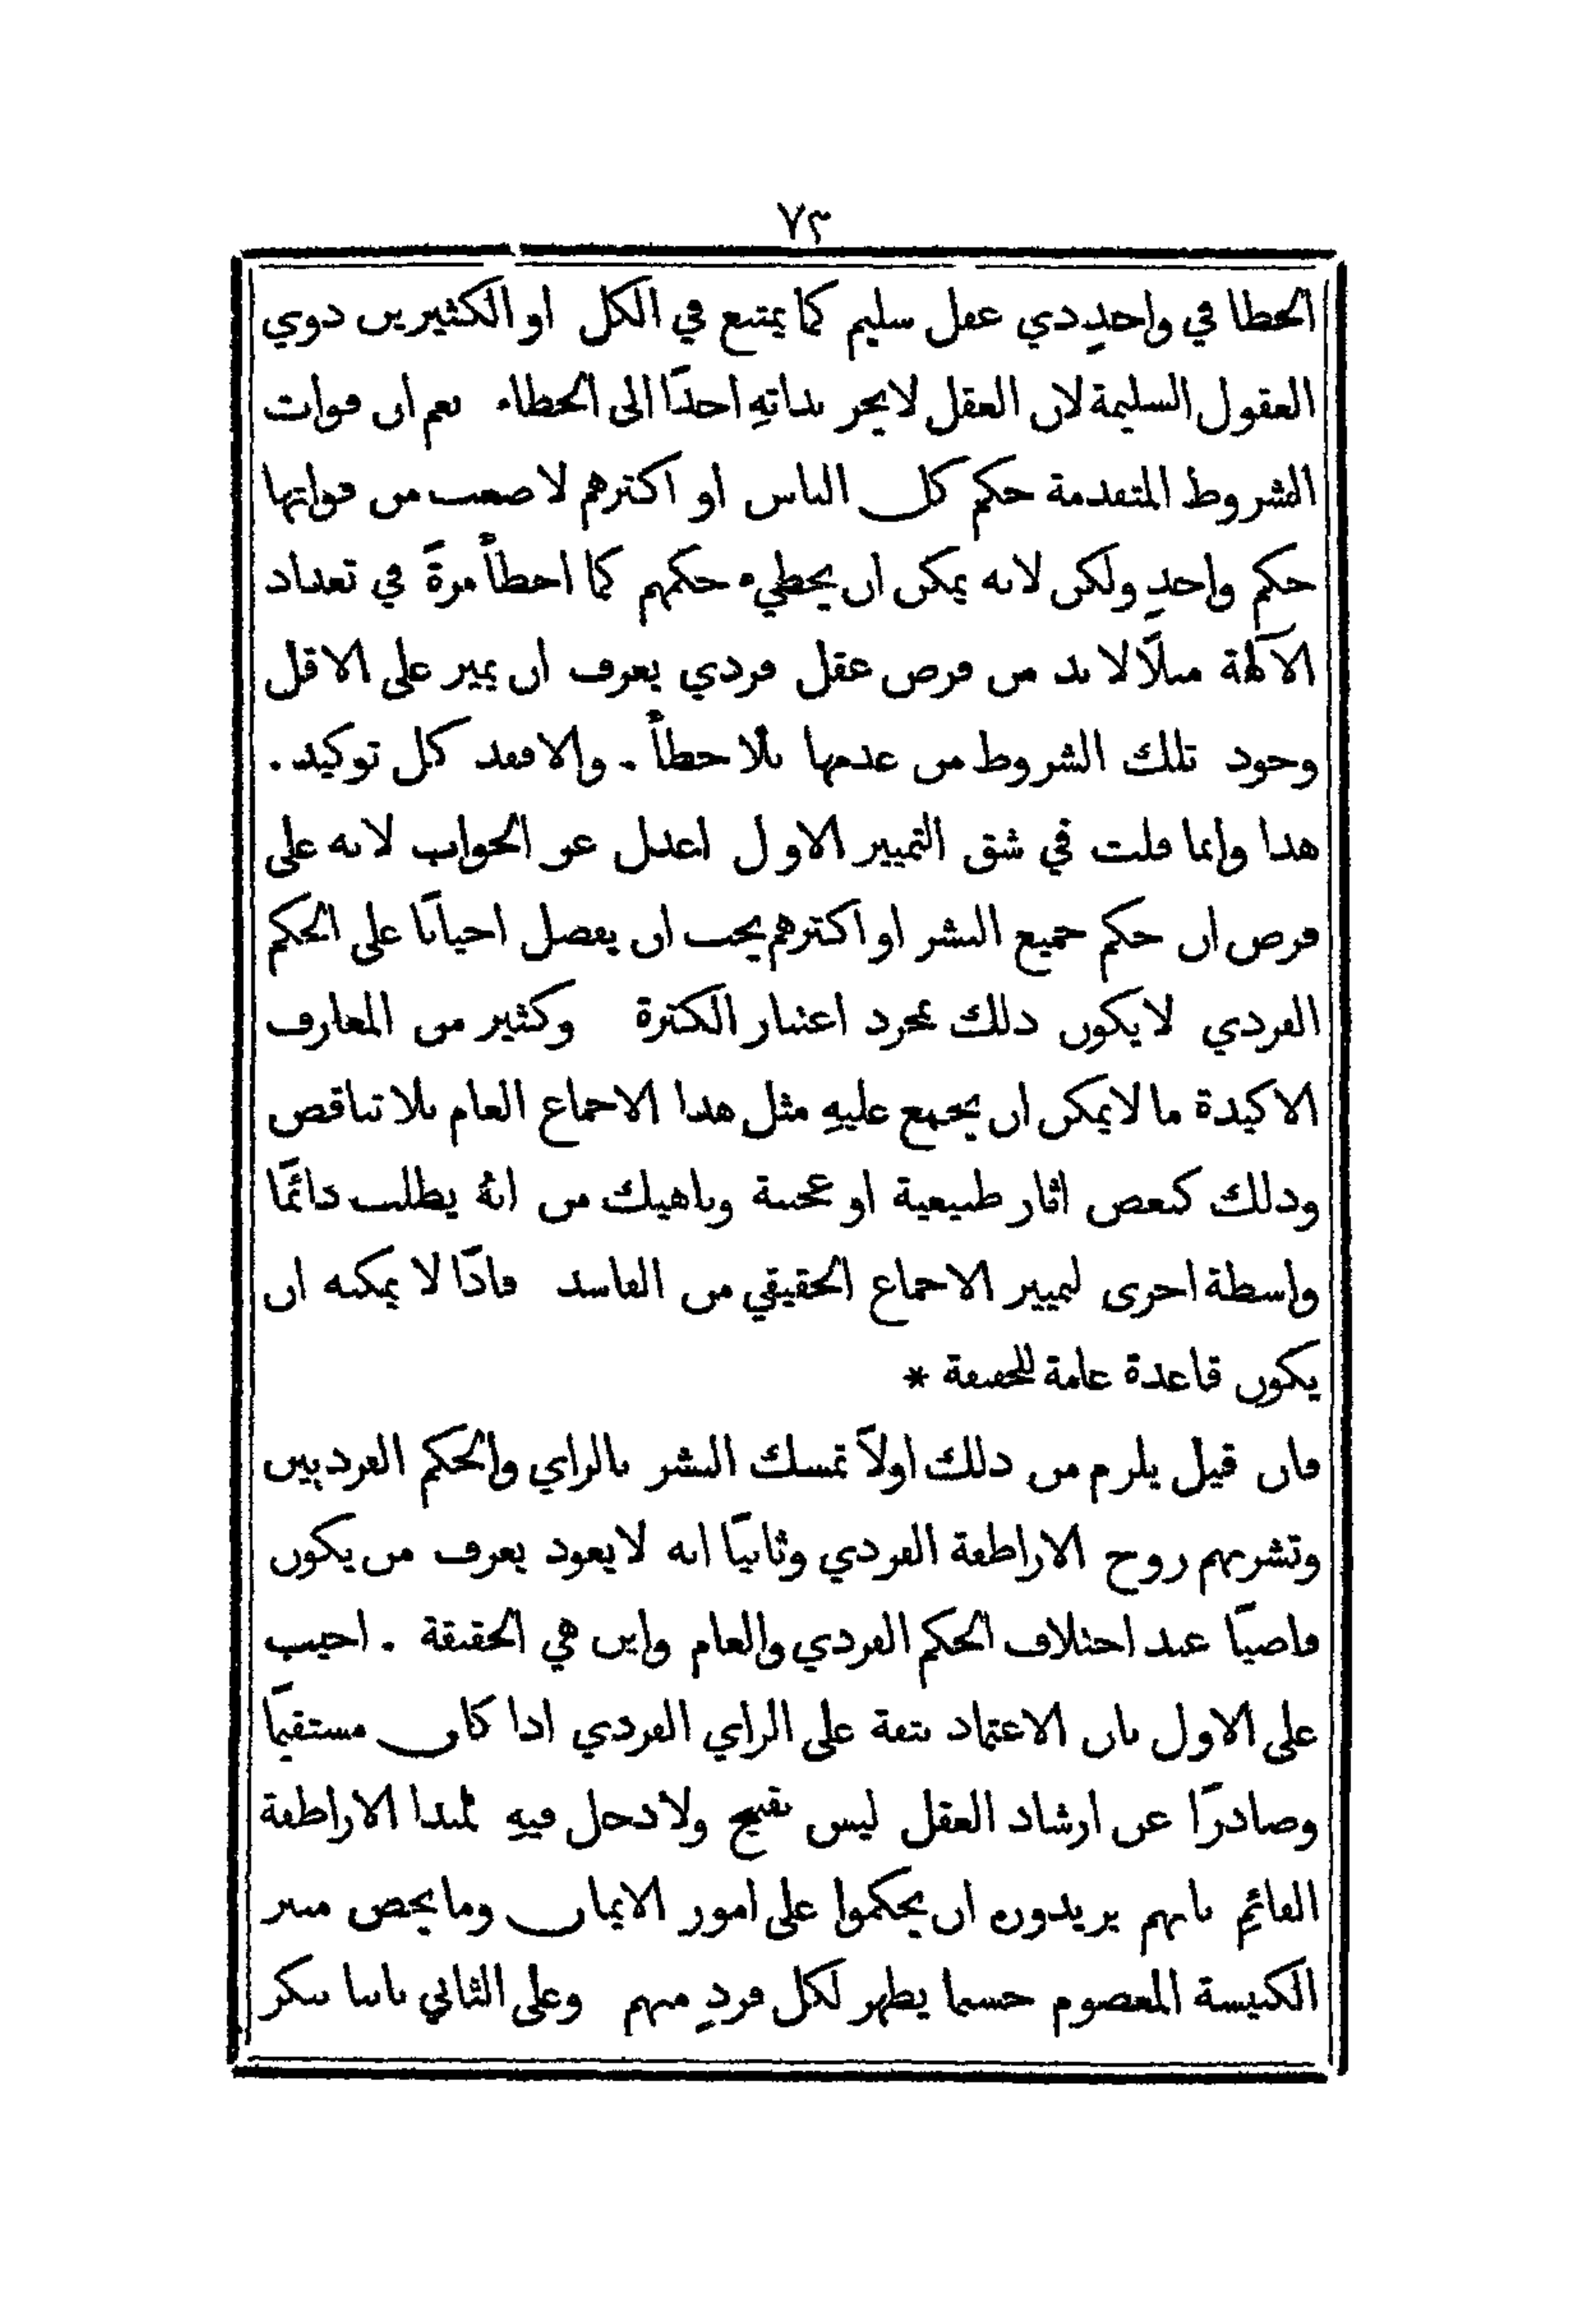 ٧٣
الخطا في واحدٍ ذي عقل سليم كما يمتنع في الكل او الكثيرين ذوي
العقول السليمة لان العقل لا يجر بذاتهِ احدًا الى الخطاء نعم ان فوات
الشروط المتقدمة حكم كل الناس او اكثرهم لاصعب من فواتها
حكم واحدٍ ولكن لانه يمكن ان يخطيء حكمهم كما اخطأ مرةً في تعداد
الآلهة مثلًا لا بد من فرض عقل فردي يعرف ان يميز على الاقل
وجود تلك الشروط من عدمها بلا خطأ . والا فقد كل توكيد .
هذا وانما قلت في شق التمييز الاول اعدل عن الجواب لانه على
فرض ان حكم جميع البشر او اكثرهم يجب ان يفضل احيانًا على الحكم
الفردي لا يكون ذلك بمجرد اعتبار الكثرة وكثير من المعارف
الاكيدة ما لا يمكن ان يجمع عليهِ مثل هذا الاجماع العام بلا تناقض
وذلك كبعض اثار طبيعية او وناهيك من انهُ يطلب دائمًا
واسطة اخرى لتمييز الاجماع الحقيقي من الفاسد فاذًا لا يمكنه ان
يكون قاعدة عامة للحقيقة *
فان قيل يلزم من ذلك اولاً تمسك البشر بالراي والحكم الفرديين
وتشربهم روح الاراطقة الفردي وثانيًا انه لا يعود يعرف من يكون
قاضيًا عند اختلاف الحكم الفردي والعام واين هي الحقيقة . اجيب
على الاول بان الاعتماد بثقة على الراي الفردي اذا كان مستقيمًا
وصادرًا عن ارشاد العقل ليس بقبيح ولا دخل فيهِ لمبدا الاراطقة
القائم بانهم يريدون ان يحكموا على امور الايمان وما يخص منبر
الكنيسة المعصوم حسبما يظهر لكل فردٍ منهم وعلى الثاني باننا ننكر